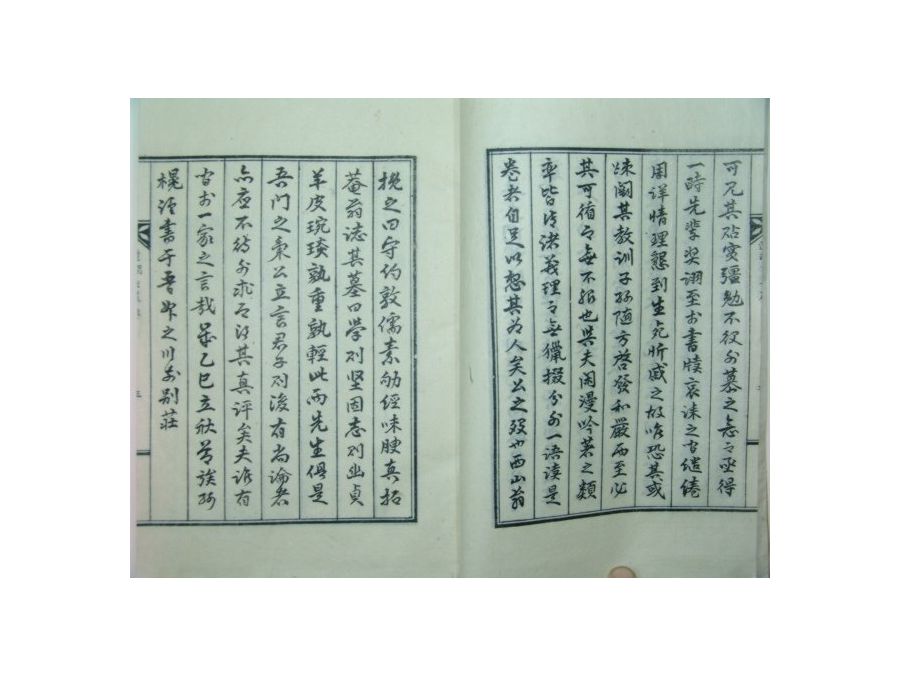 可見其砧寞彊勉不役外慕之意而亟得
一時先輩奬詡至於書牘哀誄之有繾綣
周詳情理懇到生死忻戚之故唯恐其或
疎闕其教訓子孫隨方啓發和嚴而至必
其可循而無不振也與夫閑漫吟著之類
率皆皆諸義理而無獵掇分外一語讀是
卷者自足以想其爲人矣公之歿也西山翁
挽之曰守約敦儒素劬經味腴真拓
菴翁誌其墓曰學則坚固志則幽貞
羊皮琬琰孰重孰輕此兩先生俱是
吾門之秉公立言君子則後有尚論者
亦應不待外求而得其真評矣夫詎有
古於一家之言哉 乙巳立秋節族孫
榥謹書于吾 之川 別莊